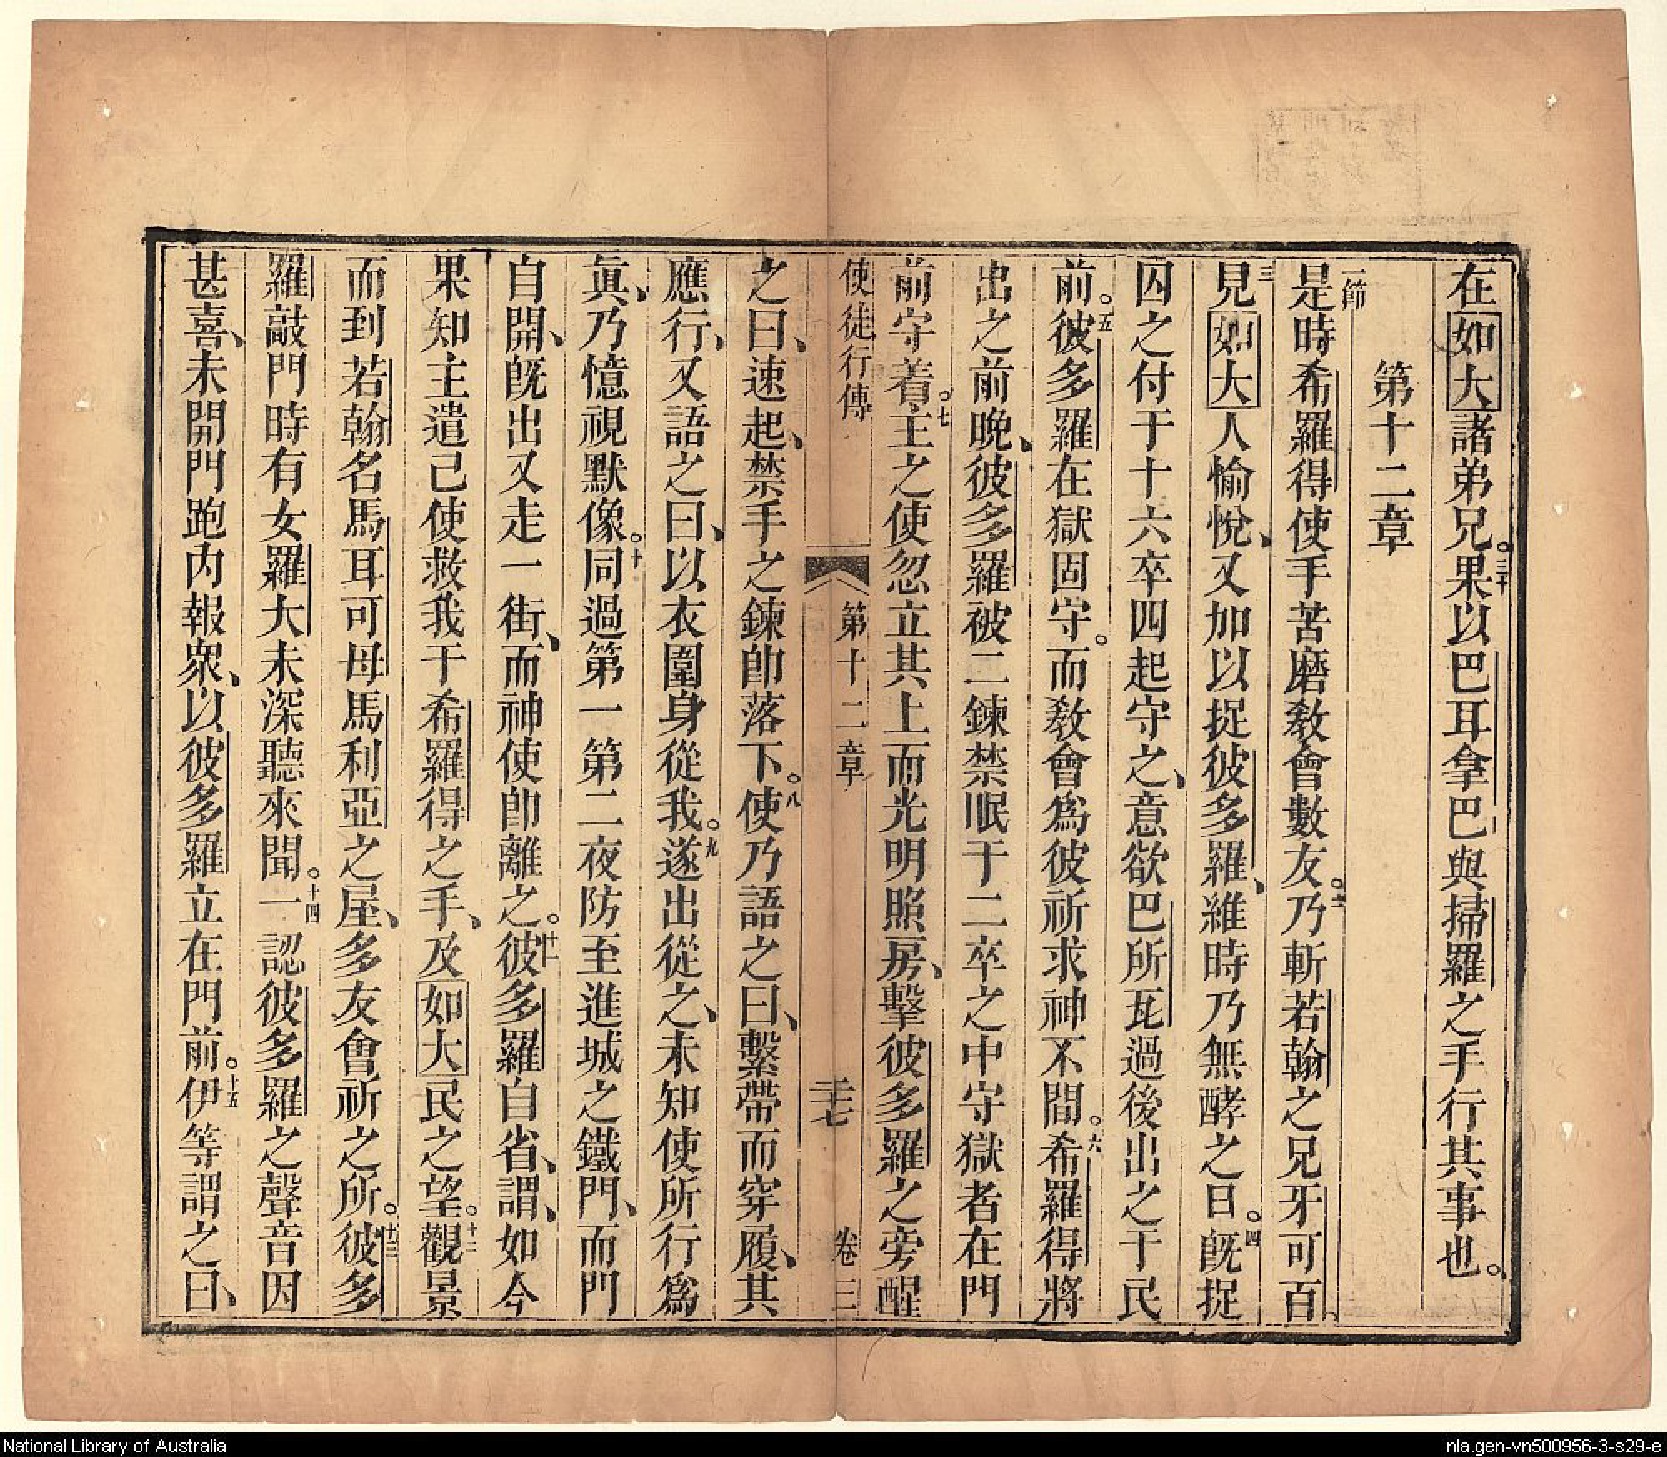 在如大諸弟兄。三十果以巴耳拿巴與掃羅之手行其事也。
第十二章
一節是時希羅得使手苦磨教會數友。二乃斬若翰之兄牙可百、
三見如大人愉悅、又加以捉彼多羅、維時乃無酵之日。四既捉
囚之付于十六卒四起守之、意欲巴所瓦過後出之于民
前。五彼多羅在獄固守。而教會為彼祈求神不間。六希羅得將
出之前晚、彼多羅被二鍊禁眠于二卒之中守獄者在門
前守着。七主之使忽立其上而光明照房、擊彼多羅之旁醒
使徒行傳 第十二章 二十七 卷三
之曰、速起、禁手之鍊卽落下。八使乃語之曰、繫帶而穿履、其
應行、又語之曰、以衣圍身從我。九遂出從之、未知使所行為
眞、乃憶視默像。十同過第一第二夜防至進城之鐵門、而門
自開、旣出又走一街、而神使卽離之。十一彼多羅自省、謂、如今
果知主遣己使救我于希羅得之手、及如大民之望。十二觀景
而到若翰名馬耳可母馬利亞之屋、多友會祈之所。十三彼多
羅敲門時有女羅大未深聽來聞。十四一認彼多羅之聲音因
甚喜、未開門跑內報眾、以彼多羅立在門前。十五伊等謂之曰、
National Library of Australia
nla.gen-vn500956-3-s29-e